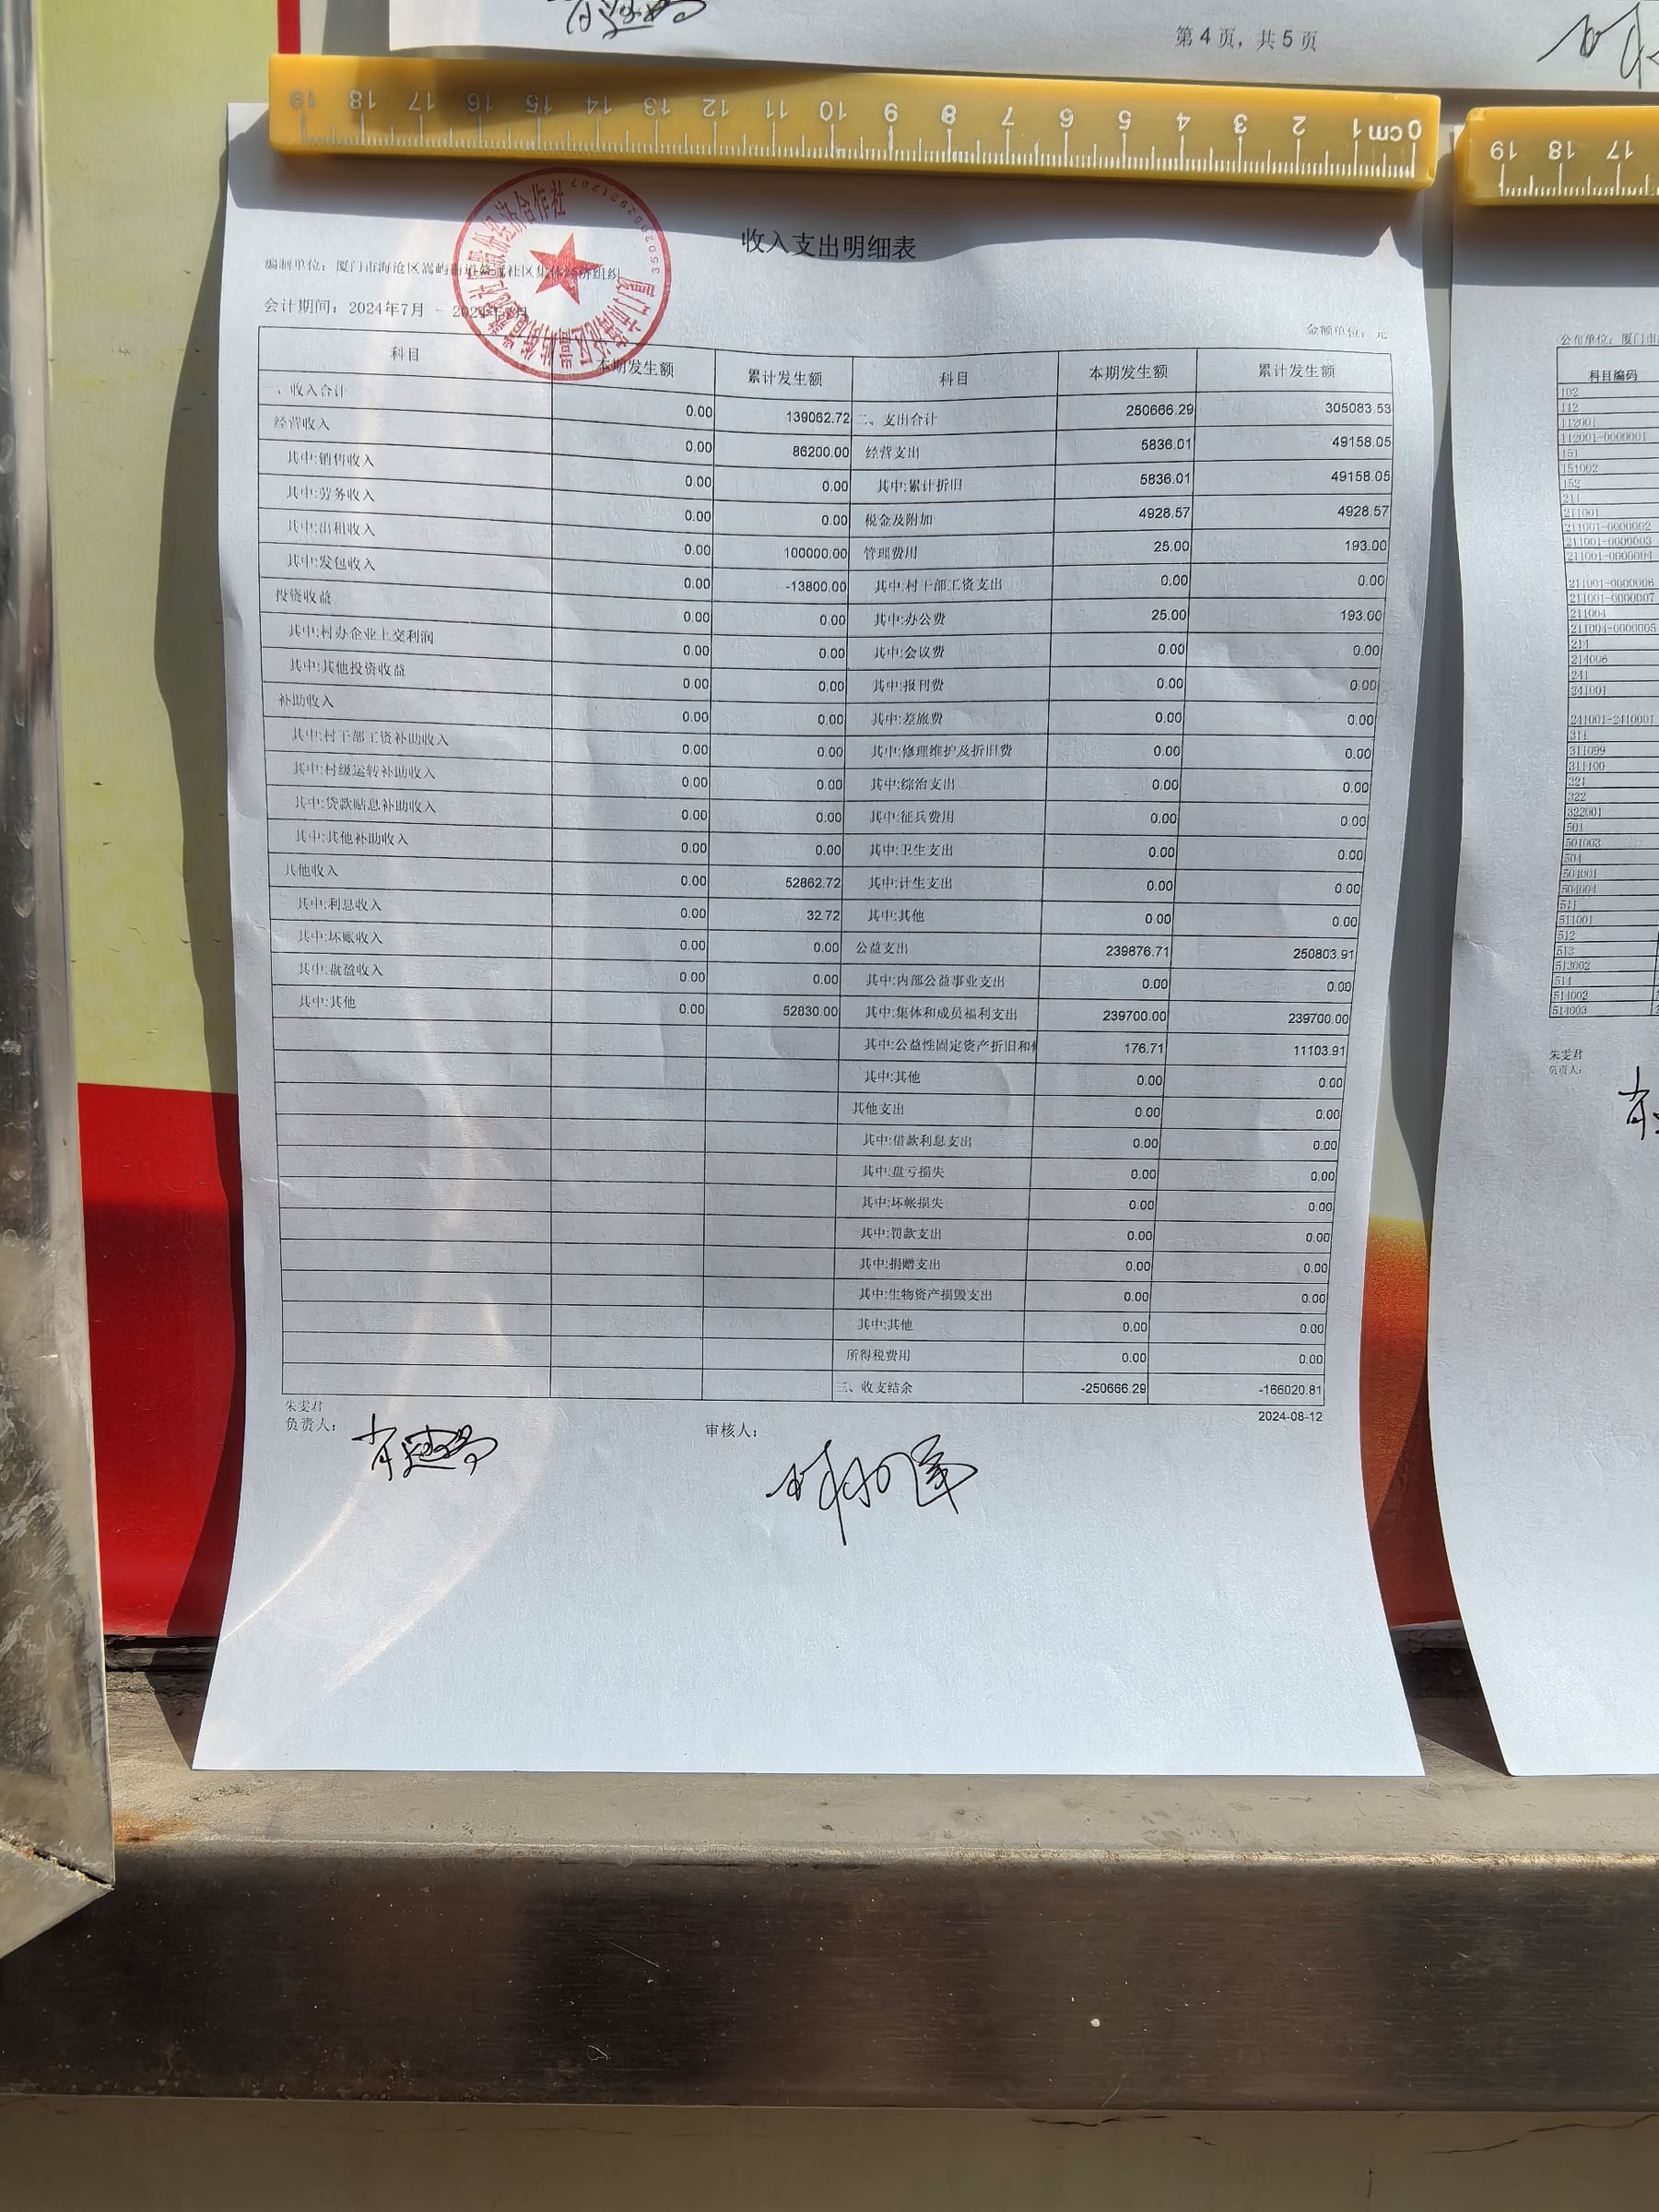 第 4 页, 共 5 页
0 cm 1 2 3 4 5 6 7 8 9 10 11 12 13 14 15 16 17 18 19
17 18 19
收入支出明细表
编制单位: 厦门市海沧区嵩屿街道 社区集体经济组织
会计期间: 2024年7月 -
金额单位: 元
科目 本期发生额 累计发生额 科目 本期发生额 累计发生额
一、收入合计 0.00 139062.72 二、支出合计 250666.29 305083.53
经营收入 0.00 86200.00 经营支出 5836.01 49158.05
其中:销售收入 0.00 0.00 其中:累计折旧 5836.01 49158.05
其中:劳务收入 0.00 0.00 税金及附加 4928.57 4928.57
其中:出租收入 0.00 100000.00 管理费用 25.00 193.00
其中:发包收入 0.00 -13800.00 其中:村干部工资支出 0.00 0.00
投资收益 0.00 0.00 其中:办公费 25.00 193.00
其中:村办企业上交利润 0.00 0.00 其中:会议费 0.00 0.00
其中:其他投资收益 0.00 0.00 其中:报刊费 0.00 0.00
补助收入 0.00 0.00 其中:差旅费 0.00 0.00
其中:村干部工资补助收入 0.00 0.00 其中:修理维护及折旧费 0.00 0.00
其中:村级运转补助收入 0.00 0.00 其中:综治支出 0.00 0.00
其中:贷款贴息补助收入 0.00 0.00 其中:征兵费用 0.00 0.00
其中:其他补助收入 0.00 0.00 其中:卫生支出 0.00 0.00
其他收入 0.00 52862.72 其中:计生支出 0.00 0.00
其中:利息收入 0.00 32.72 其中:其他 0.00 0.00
其中:坏账收入 0.00 0.00 公益支出 239876.71 250803.91
其中:盘盈收入 0.00 0.00 其中:内部公益事业支出 0.00 0.00
其中:其他 0.00 52830.00 其中:集体和成员福利支出 239700.00 239700.00
其中:公益性固定资产折旧和 176.71 11103.91
其中:其他 0.00 0.00
其他支出 0.00 0.00
其中:借款利息支出 0.00 0.00
其中:盘亏损失 0.00 0.00
其中:坏帐损失 0.00 0.00
其中:罚款支出 0.00 0.00
其中:捐赠支出 0.00 0.00
其中:生物资产损毁支出 0.00 0.00
其中:其他 0.00 0.00
所得税费用 0.00 0.00
三、收支结余 -250666.29 -166020.81
朱雯君
负责人:
审核人:
2024-08-12
公布单位: 厦门市
科目编码
102
112
112001
112001-0000001
151
151002
152
211
211001
211001-0000002
211001-0000003
211001-0000004
211001-0000006
211001-0000007
211004
211004-0000005
214
214006
241
241001
241001-2410001
311
311099
311100
321
322
322001
501
501003
504
504001
504004
511
511001
512
513
513002
514
514002
514003
朱雯君
负责人: